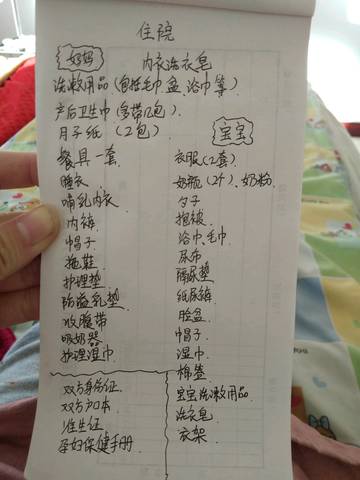 住院
妈妈
内衣洗衣皂
洗漱用品(包括毛巾、盆、浴巾等)
产后卫生巾(多带几包)
月子纸 (2包)
餐具一套
睡衣
哺乳内衣
内裤
帽子
拖鞋
护理垫
防溢乳垫
收腹带
吸奶器
护理湿巾
宝宝
衣服(2套)
奶瓶(2个)、奶粉
勺子
抱被
浴巾、毛巾
尿布
隔尿垫
纸尿裤
脸盆
帽子
湿巾
棉签
宝宝洗漱用品
洗衣皂
衣架
双方身份证
双方户口本
准生证
孕妇保健手册